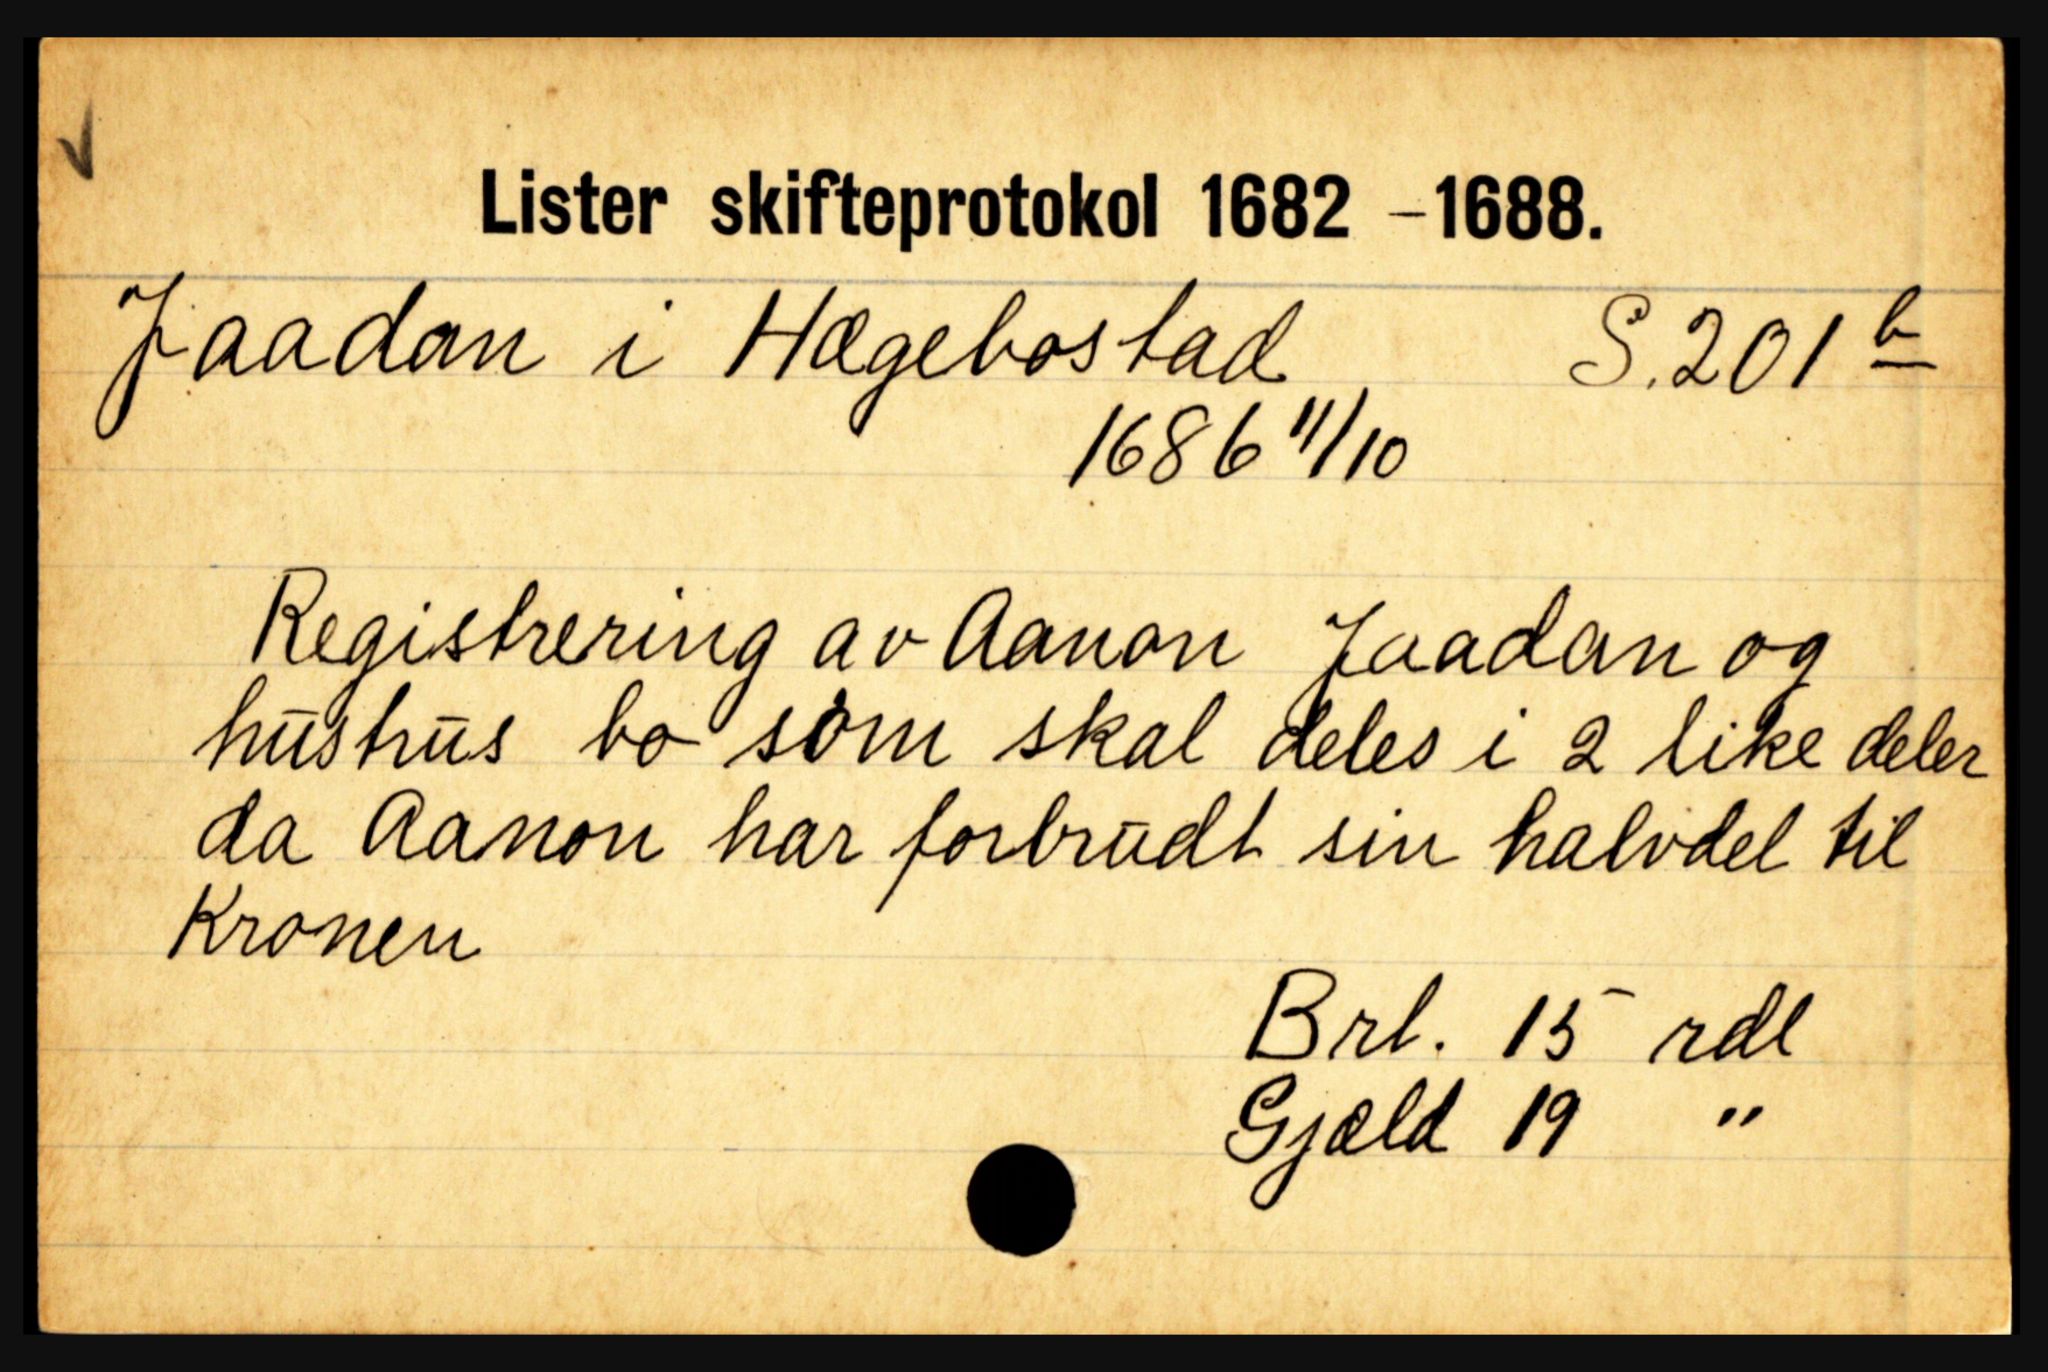 Lister skifteprotokol 1682 - 1688.
Jaadan i Hægebostad S. 201 b
1686 11/10
Registrering av Aanon Jaadan og
hustrus bo som skal deles i 2 like deler
da Aanon har forbrudt sin halvdel til
Kronen
Brl. 15 rdl
Gjæld 19 "